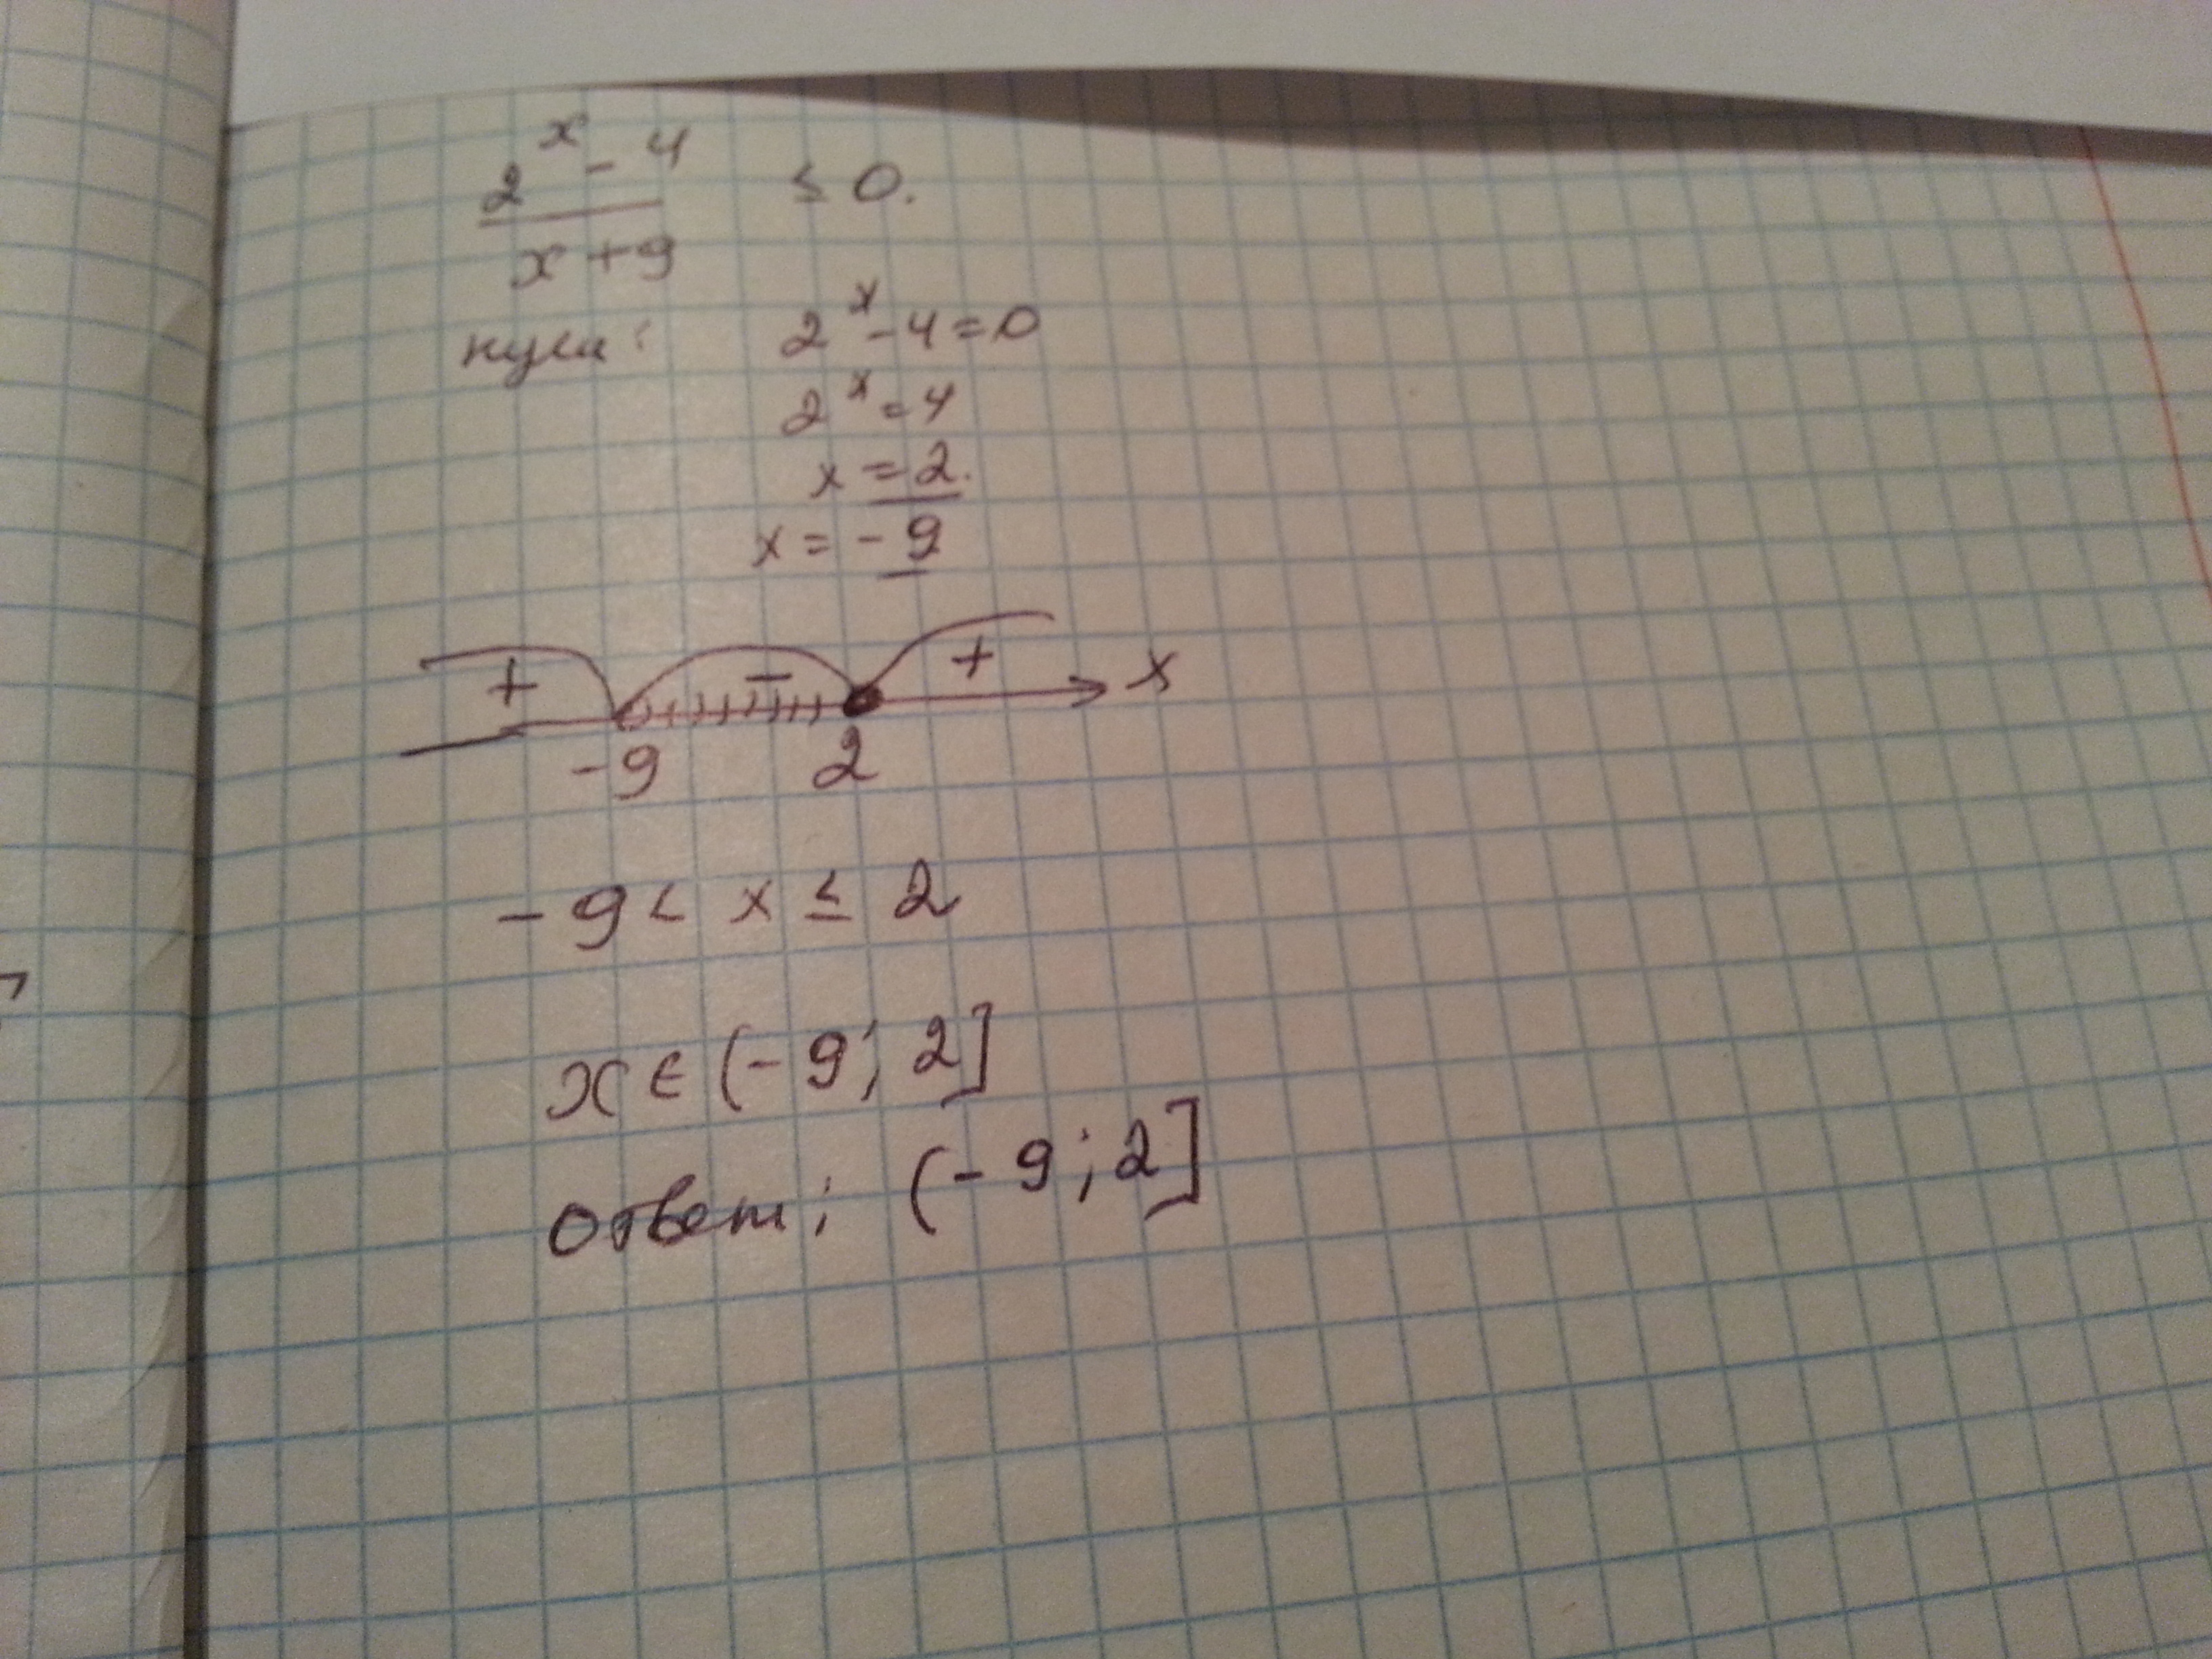 2^x - 4
x + 9
≤ 0.
нули: 2^x - 4 = 0
2^x = 4
x = 2.
x = - 9
+ - + x
-9 2
- 9 < x ≤ 2
x ∈ (- 9; 2]
ответ: (- 9; 2]